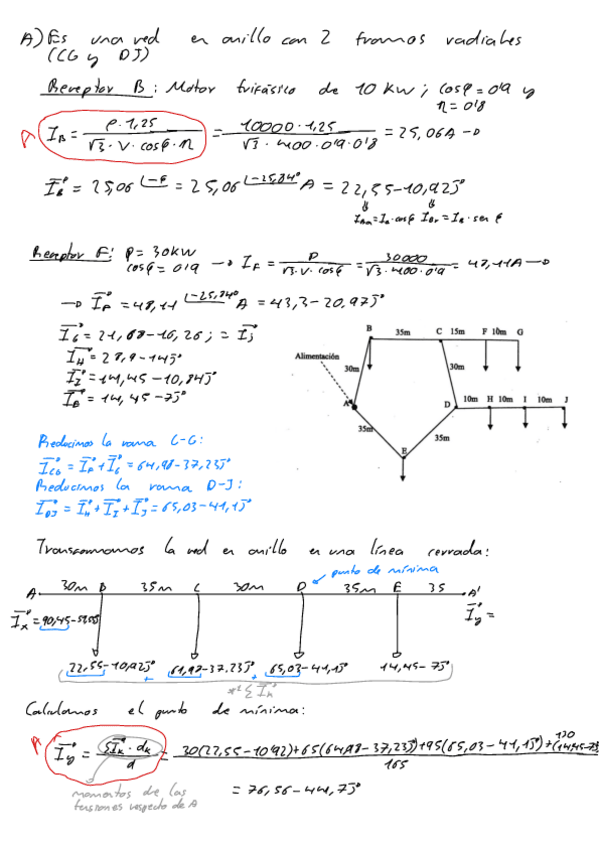 A) Es una red en anillo con 2 tramos radiales
(CG y DJ)
Receptor B: Motor trifásico de 10 kW; cosφ = 0'9 y
η = 0'8
I_B = P·1,25 / √3·V·cosφ·η = 10000·1,25 / √3·400·0'9·0'8 = 25,06A →
I_B = 25,06 ∟-φ = 25,06 ∟-25,84° A = 22,55-10,92j
I_Ba=I_B·cosφ I_Br=I_B·senφ
Receptor F: P=30kW
cosφ=0'9 → I_F = P / √3·V·cosφ = 30000 / √3·400·0'9 = 48,11A →
→ I_F = 48,11 ∟-25,84° A = 43,3-20,97j
I_G = 21,68-16,26j = I_J
I_H = 28,9-14j
I_I = 14,45-10,84j
I_E = 14,45-7j
B 35m C 15m F 10m G
Alimentación
30m 30m
A D 10m H 10m I 10m J
35m 35m
E
Reducimos la rama C-G:
I_CG = I_F + I_G = 64,98-37,23j
Reducimos la rama D-J:
I_DJ = I_H + I_I + I_J = 65,03-41,1j
Transformamos la red en anillo en una línea cerrada:
punto de mínima
A 30m B 35m C 30m D 35m E 35 A'
I_x = 90,45- I_y =
22,55-10,92j + 64,98-37,23j + 65,03-41,1j 14,45-7j
Σ I_k
Calculamos el punto de mínima:
I_y = Σ I_k · d_k / d = 30(22,55-10'92)+65(64,98-37,23j)+95(65,03-41,1j)+130(14,45-7j) / 165
momentos de las
tensiones respecto de A
= 76,56-44,7j